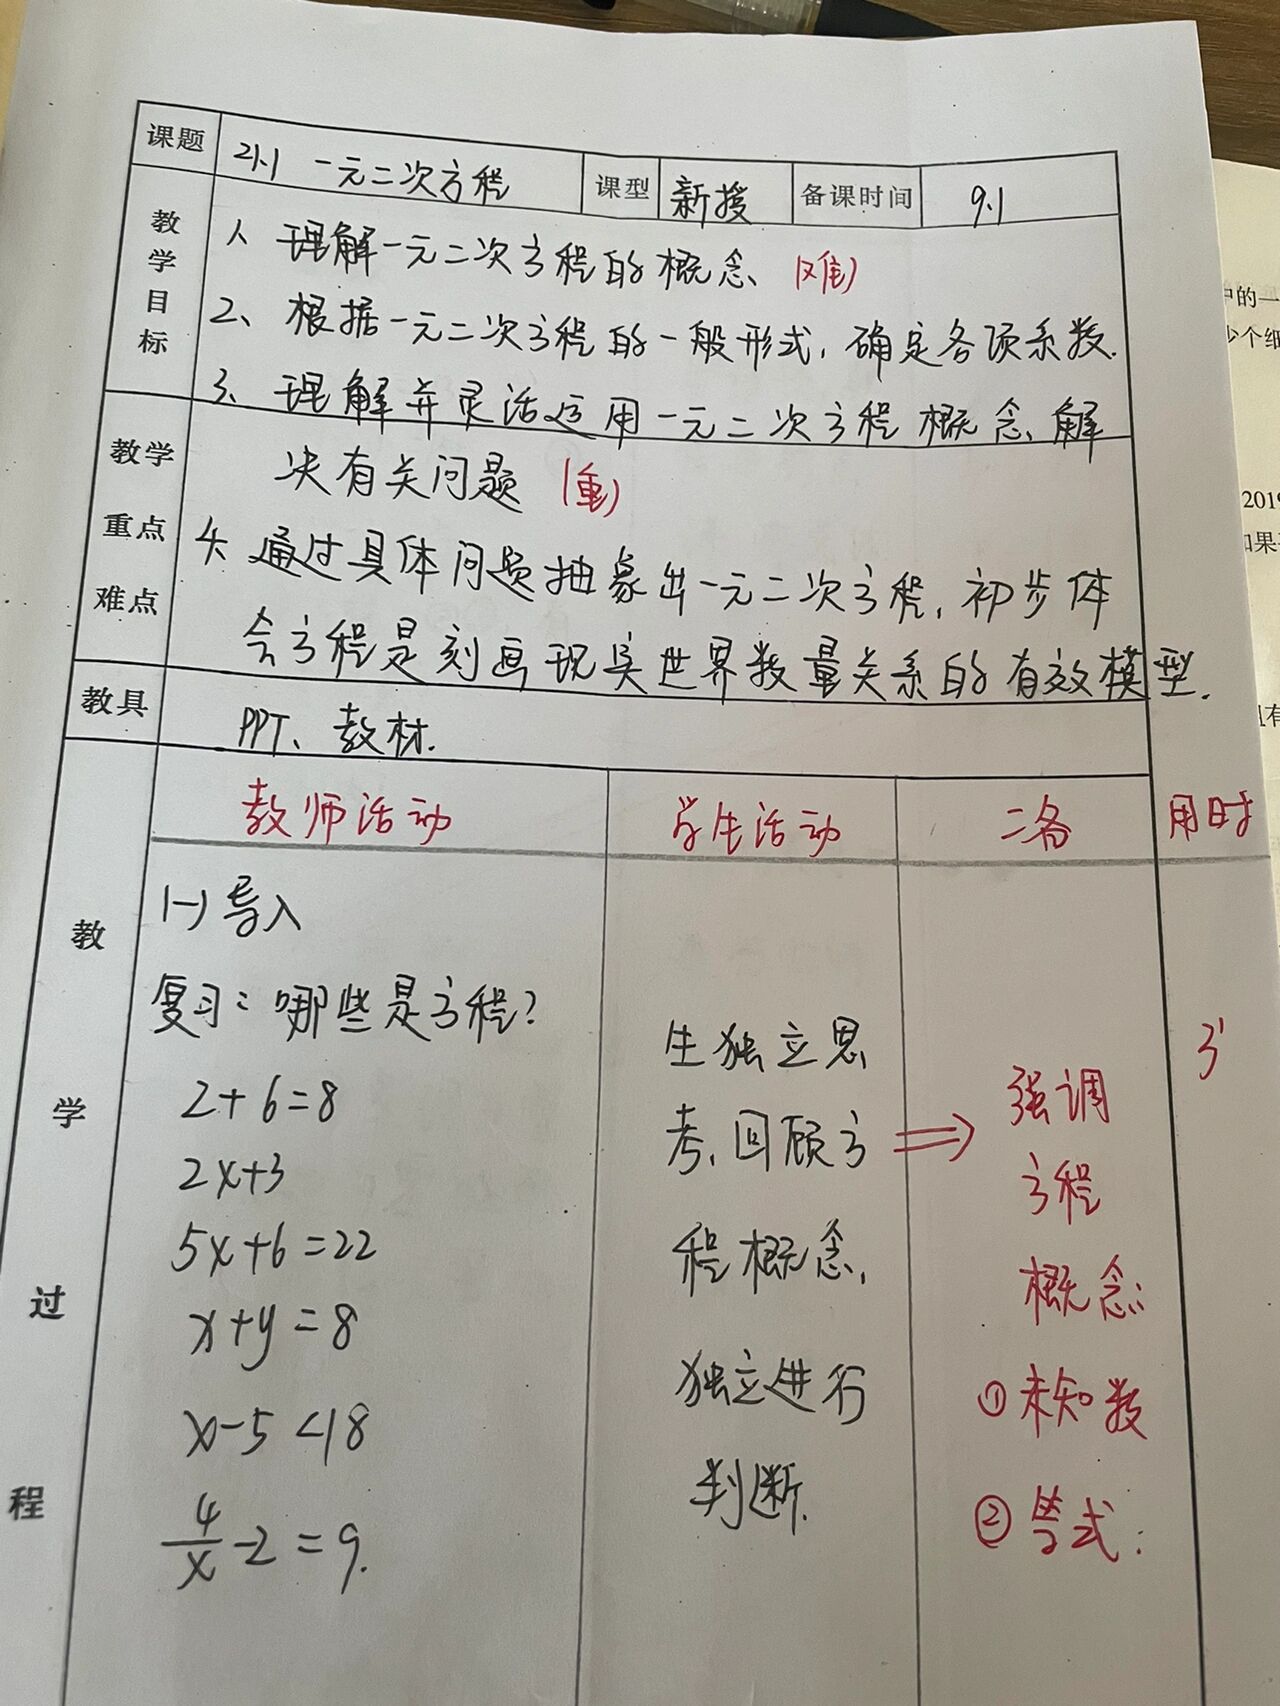 课题 21.1 一元二次方程 课型 新授 备课时间 9.1
教学目标
1、理解一元二次方程的概念、(难)
2、根据一元二次方程的一般形式,确定各项系数.
3、理解并灵活运用一元二次方程概念、解
教学重点难点
决有关问题 (重)
4、通过具体问题抽象出一元二次方程,初步体
会方程是刻画现实世界数量关系的有效模型.
教具 PPT、教材.
教师活动 学生活动 二备 用时
教学过程
(一)导入
复习:哪些是方程?
2+6=8
2x+3
5x+6=22
x+y=8
x-5<18
4/x-2=9.
生独立思
考,回顾方
程概念,
独立进行
判断.
⇒
强调
方程
概念:
①未知数
②等式:
3'
中的一
少个细
2019
如果
且有